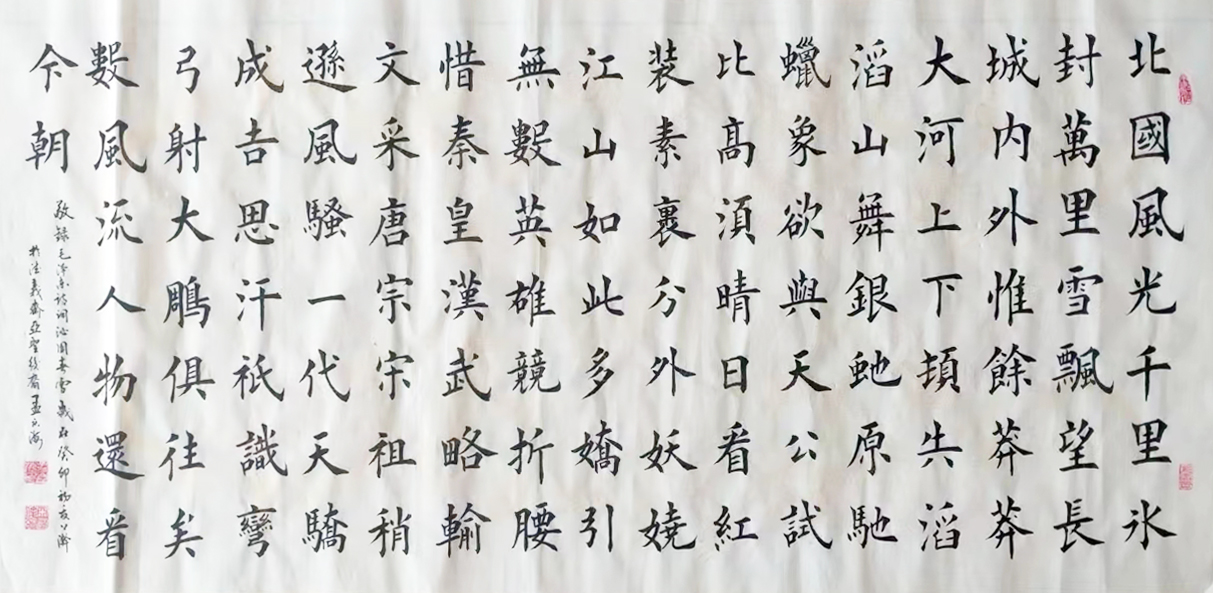 北國風光千里氷
封萬里雪飄望長
城内外惟餘莽莽
大河上下頓失滔
滔山舞銀虵原馳
蠟象欲與天公試
比高須晴日看紅
装素裹分外妖嬈
江山如此多嬌引
無數英雄競折腰
惜秦皇漢武略輸
文采唐宗宋祖稍
遜風騷一代天驕
成吉思汗祇識彎
弓射大鵰俱往矣
數風流人物還看
今朝
敬録毛澤東詩詞沁園春雪歲在癸卯初
亞聖後裔孟